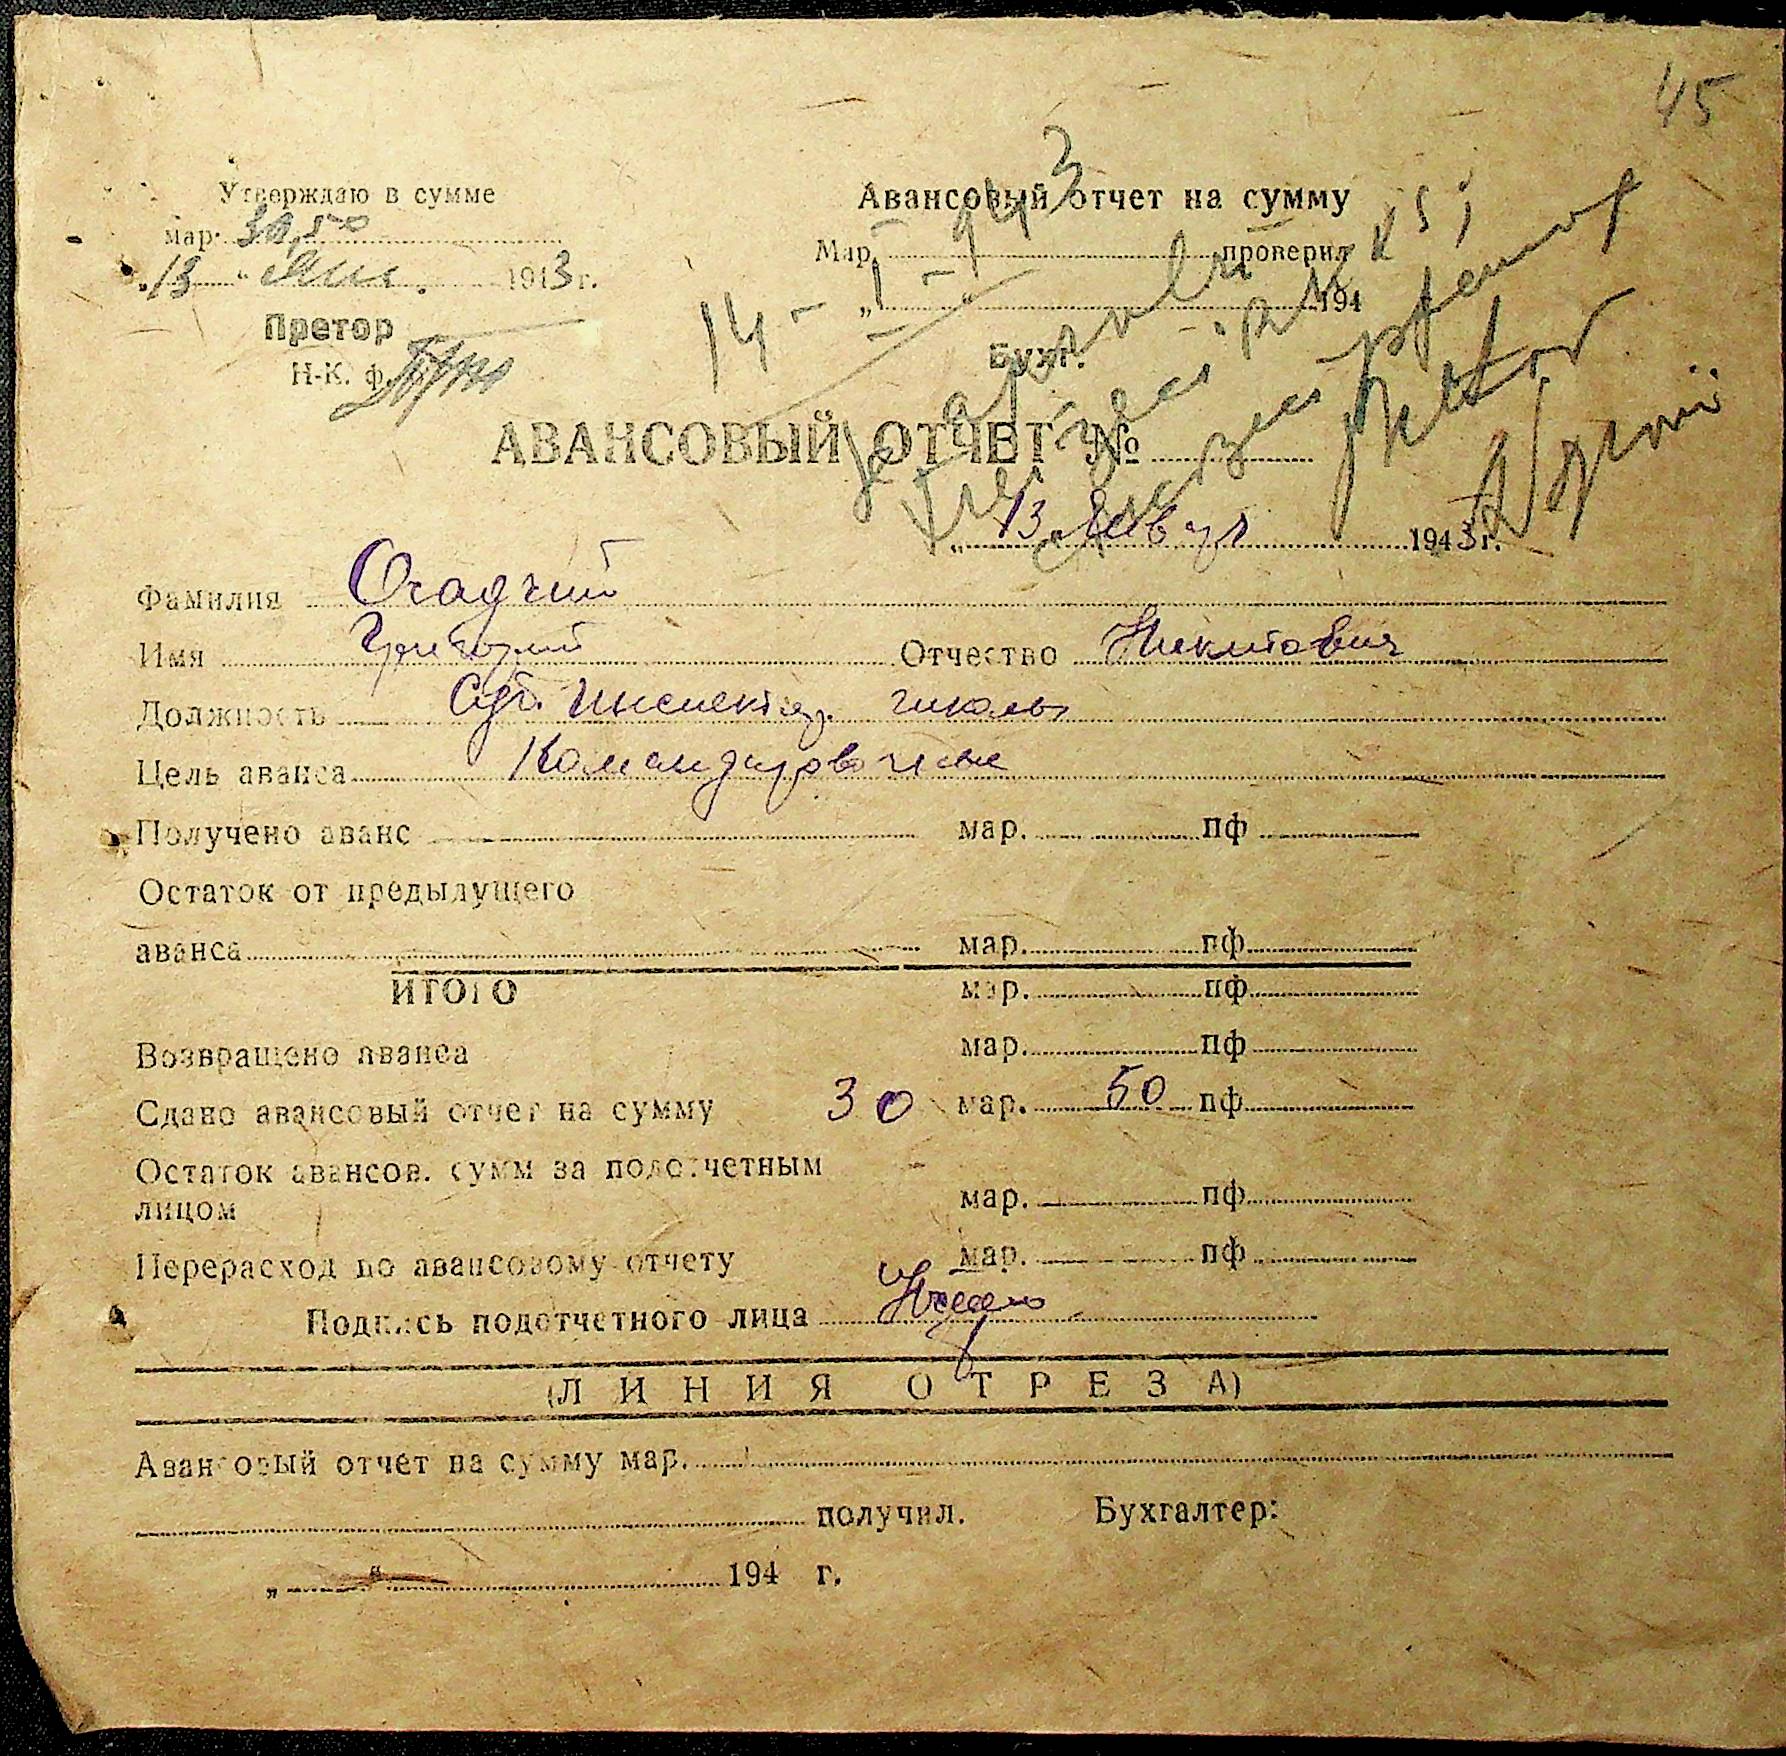 45
Утверждаю в сумме
мар. 30,50
„13“ Янв. 1943 г.
Претор
Н-К. ф.
Авансовый отчет на сумму
Мар. проверил
„ 194
Бухг.
14-I-943
АВАНСОВЫЙ ОТЧЕТ №
„13 Январ 1943 г.
Фамилия Осадчий
Имя Григорий Отчество Никитович
Должность инспектор школы
Цель аванса Командировочные
Получено аванс мар. пф
Остаток от предыдущего
аванса мар. пф
ИТОГО мар. пф
Возвращено аванса мар. пф
Сдано авансовый отчет на сумму 30 мар. 50 пф
Остаток авансов. сумм за подотчетным
лицом мар. пф
Перерасход по авансовому отчету мар. пф
Подпись подотчетного лица
(ЛИНИЯ ОТРЕЗА)
Авансовый отчет на сумму мар.
получил. Бухгалтер:
„ “ 194 г.